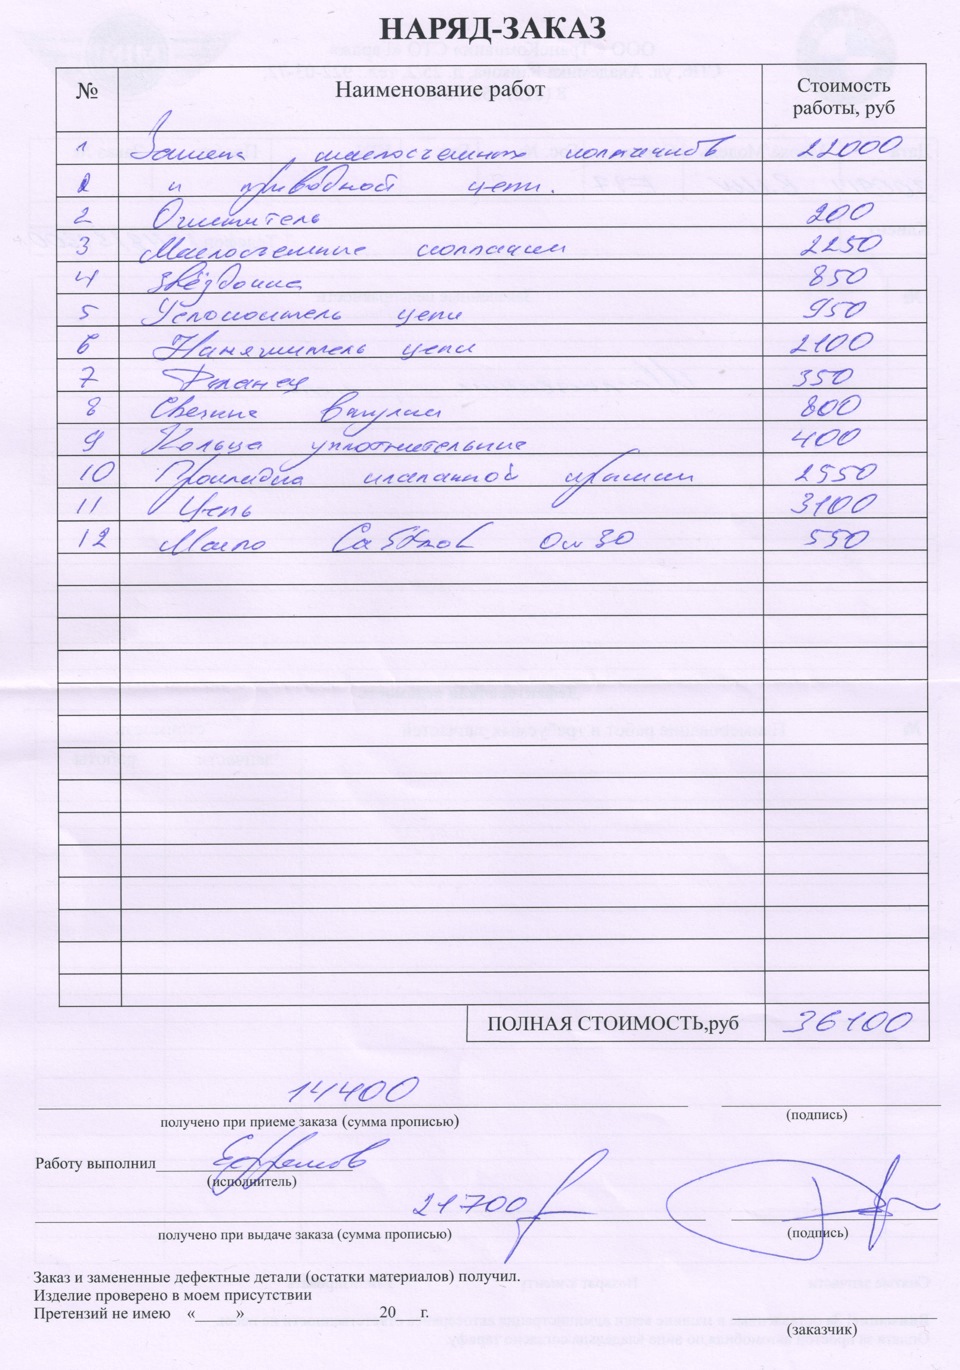 НАРЯД-ЗАКАЗ
№ Наименование работ Стоимость работы, руб
1 Замена маслосъемных колпачков 22000
и приводной цепи.
2 Очиститель 200
3 Маслосъемные колпачки 2250
4 Звёздочка 850
5 Успокоитель цепи 950
6 Натяжитель цепи 2100
7 Фланец 350
8 Свечные 800
9 Кольца уплотнительные 400
10 Прокладка клапанной крышки 2550
11 Цепь 3100
12 Масло Castrol 0w30 550
ПОЛНАЯ СТОИМОСТЬ,руб 36100
14400
получено при приеме заказа (сумма прописью) (подпись)
Работу выполнил Ефремов
(исполнитель)
21700
получено при выдаче заказа (сумма прописью) (подпись)
Заказ и замененные дефектные детали (остатки материалов) получил.
Изделие проверено в моем присутствии
Претензий не имею «____» 20 г.
(заказчик)